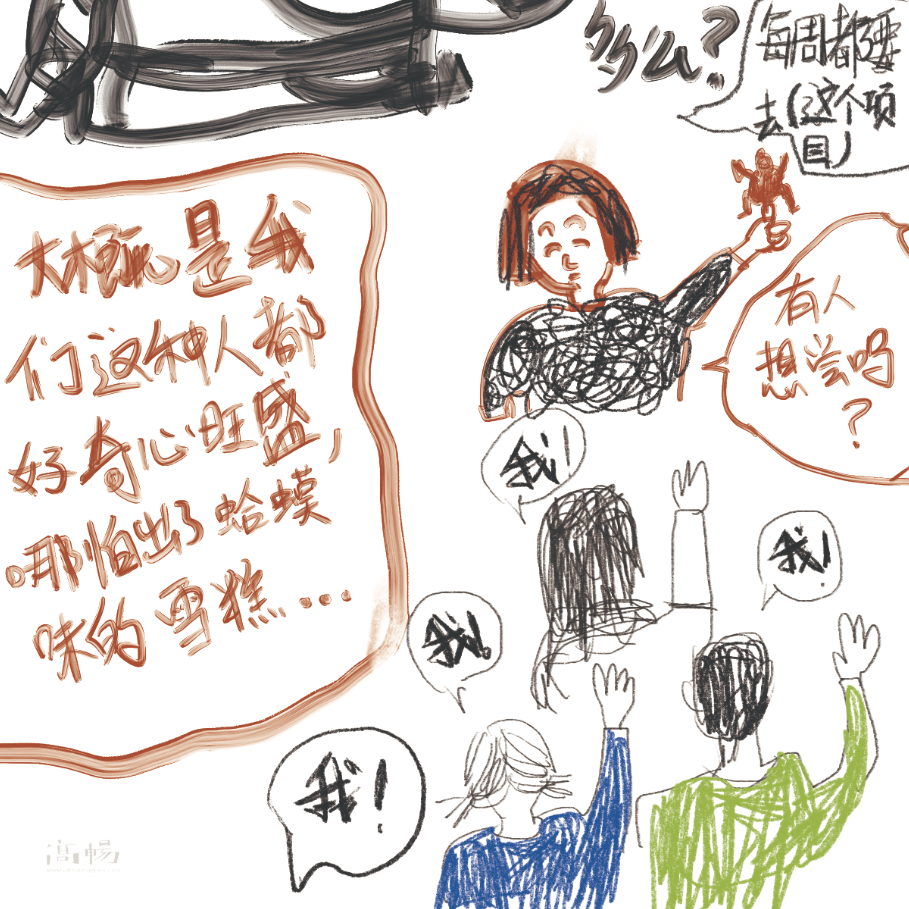 多么?
每周都要
去(这个项
目)
大概是我
们这种人都
好奇心旺盛,
哪怕出了蛤蟆
味的雪糕...
有人
想尝吗
?
我!
我!
我!
我!
高畅